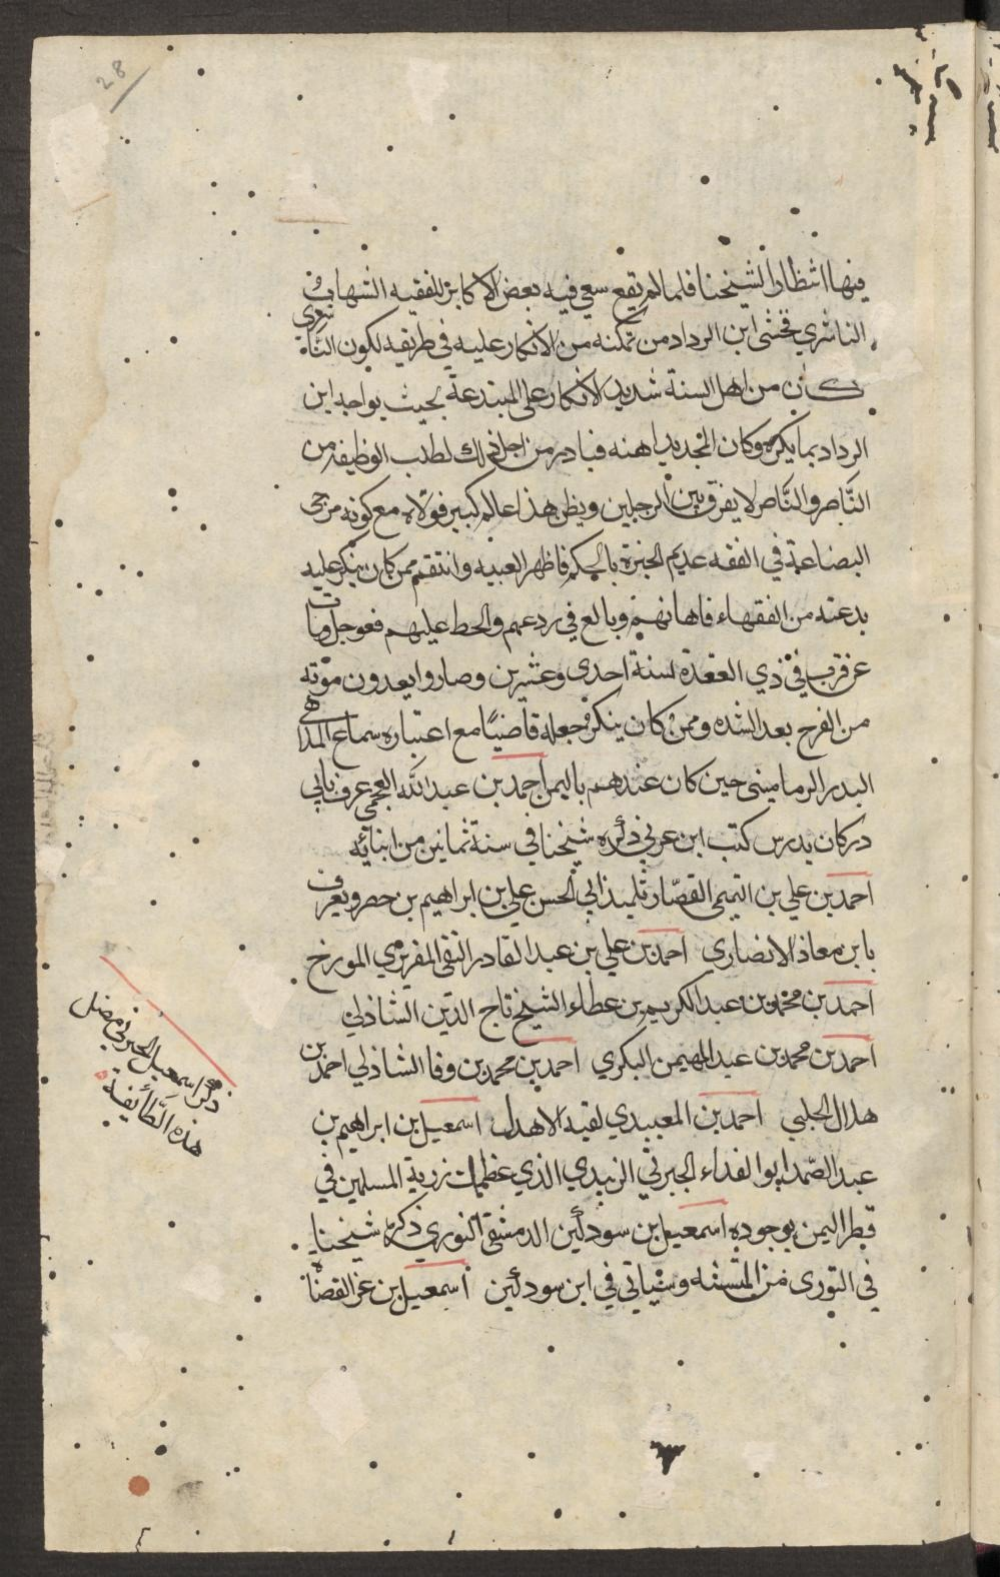 28
فيها انتظارا لشيخنا فلما لم يقع سعى فيه بعض الاكابر للفقيه الشهاب
الناشري فخشى ابن الرداد من تمكنه من الانكار عليه في طريقه لكون الناشري
كان من اهل السنة شديد الانكار على المبتدعة بحيث يواجه ابن
الرداد بما يكره وكان المجد يداهنه فبادر من اجل ذلك لطلب الوظيفة من
الناصر والناصر لا يفرق بين الرجلين ويظن هذا عالم كبير فولاه مع كونه مزجى
البضاعة في الفقه عديم الخبرة بالحكم فاظهر العصبيه وانتقم ممن كان ينكر عليه
بدعته من الفقهاء فاهانهم وبالغ في ردعهم والحط عليهم فعوجل ومات
عن قرب في ذي القعدة لسنة احدى وعشرين وصاروا يعدون موته
من الفرج بعد الشده وممن كان ينكر فجعله قاضيا مع اعتباره سماع الملاهي
البدر الدماميني حين كان عندهم باليمن احمد بن عبد الله العجمي عرف بابي
در كان يدرس كتب ابن عربي ذكره شيخنا في سنة ثمانين من ابنائه
احمد بن علي بن التيمي القصار تلميذ ابي الحسن علي بن ابراهيم بن حصر ويعرف
بابن معاذ الانصاري احمد بن علي بن عبد القادر التقي المقريزي المورخ
احمد بن محمد بن عبد الكريم بن عطاء الشيخ تاج الدين الشاذلي
احمد بن محمد بن عبد المهيمن البكري احمد بن محمد بن وفا الشاذلي احمد بن
هلال الحلبي احمد بن المعبيدي لقيه الاهدل اسمعيل بن ابراهيم بن
عبد الصمد ابو الفداء الجبرتي الزبيدي الذي عظمات رزية المسلمين في
قطر اليمن بوجوده اسمعيل بن سودكين الدمشقي النوري ذكره شيخنا
في النورى من المتشبه وسياتي في ابن سودكين اسمعيل بن عز القضاة
ذكر اسمعيل الجبرتي مضل
هذه الطائفة